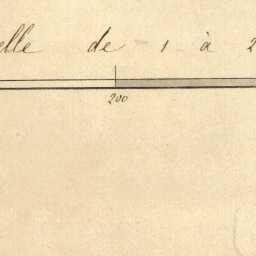 elle de 1 à 2
200